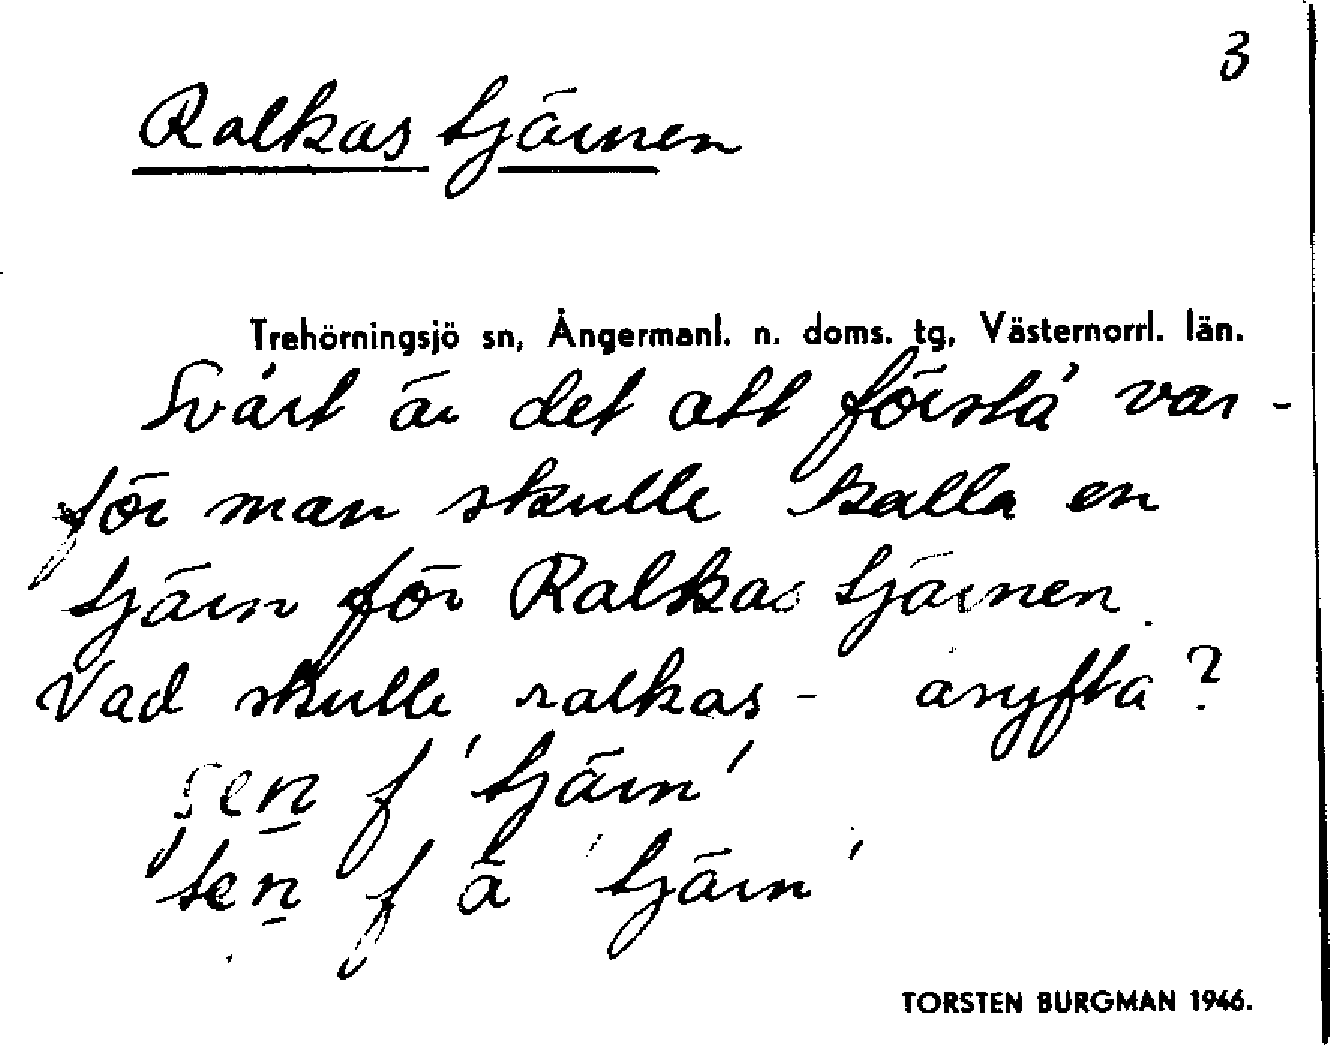 3
Ralkas tjärnen
Trehörningsjö sn, Ångermanl. n. doms. tg, Västernorrl. län.
Svårt är det att förstå var-
för man skulle kalla en
tjärn för Ralkas tjärnen.
Vad skulle ralkas- asyfta?
f 'tjärn'
f ä 'tjärn'
TORSTEN BURGMAN 1946.